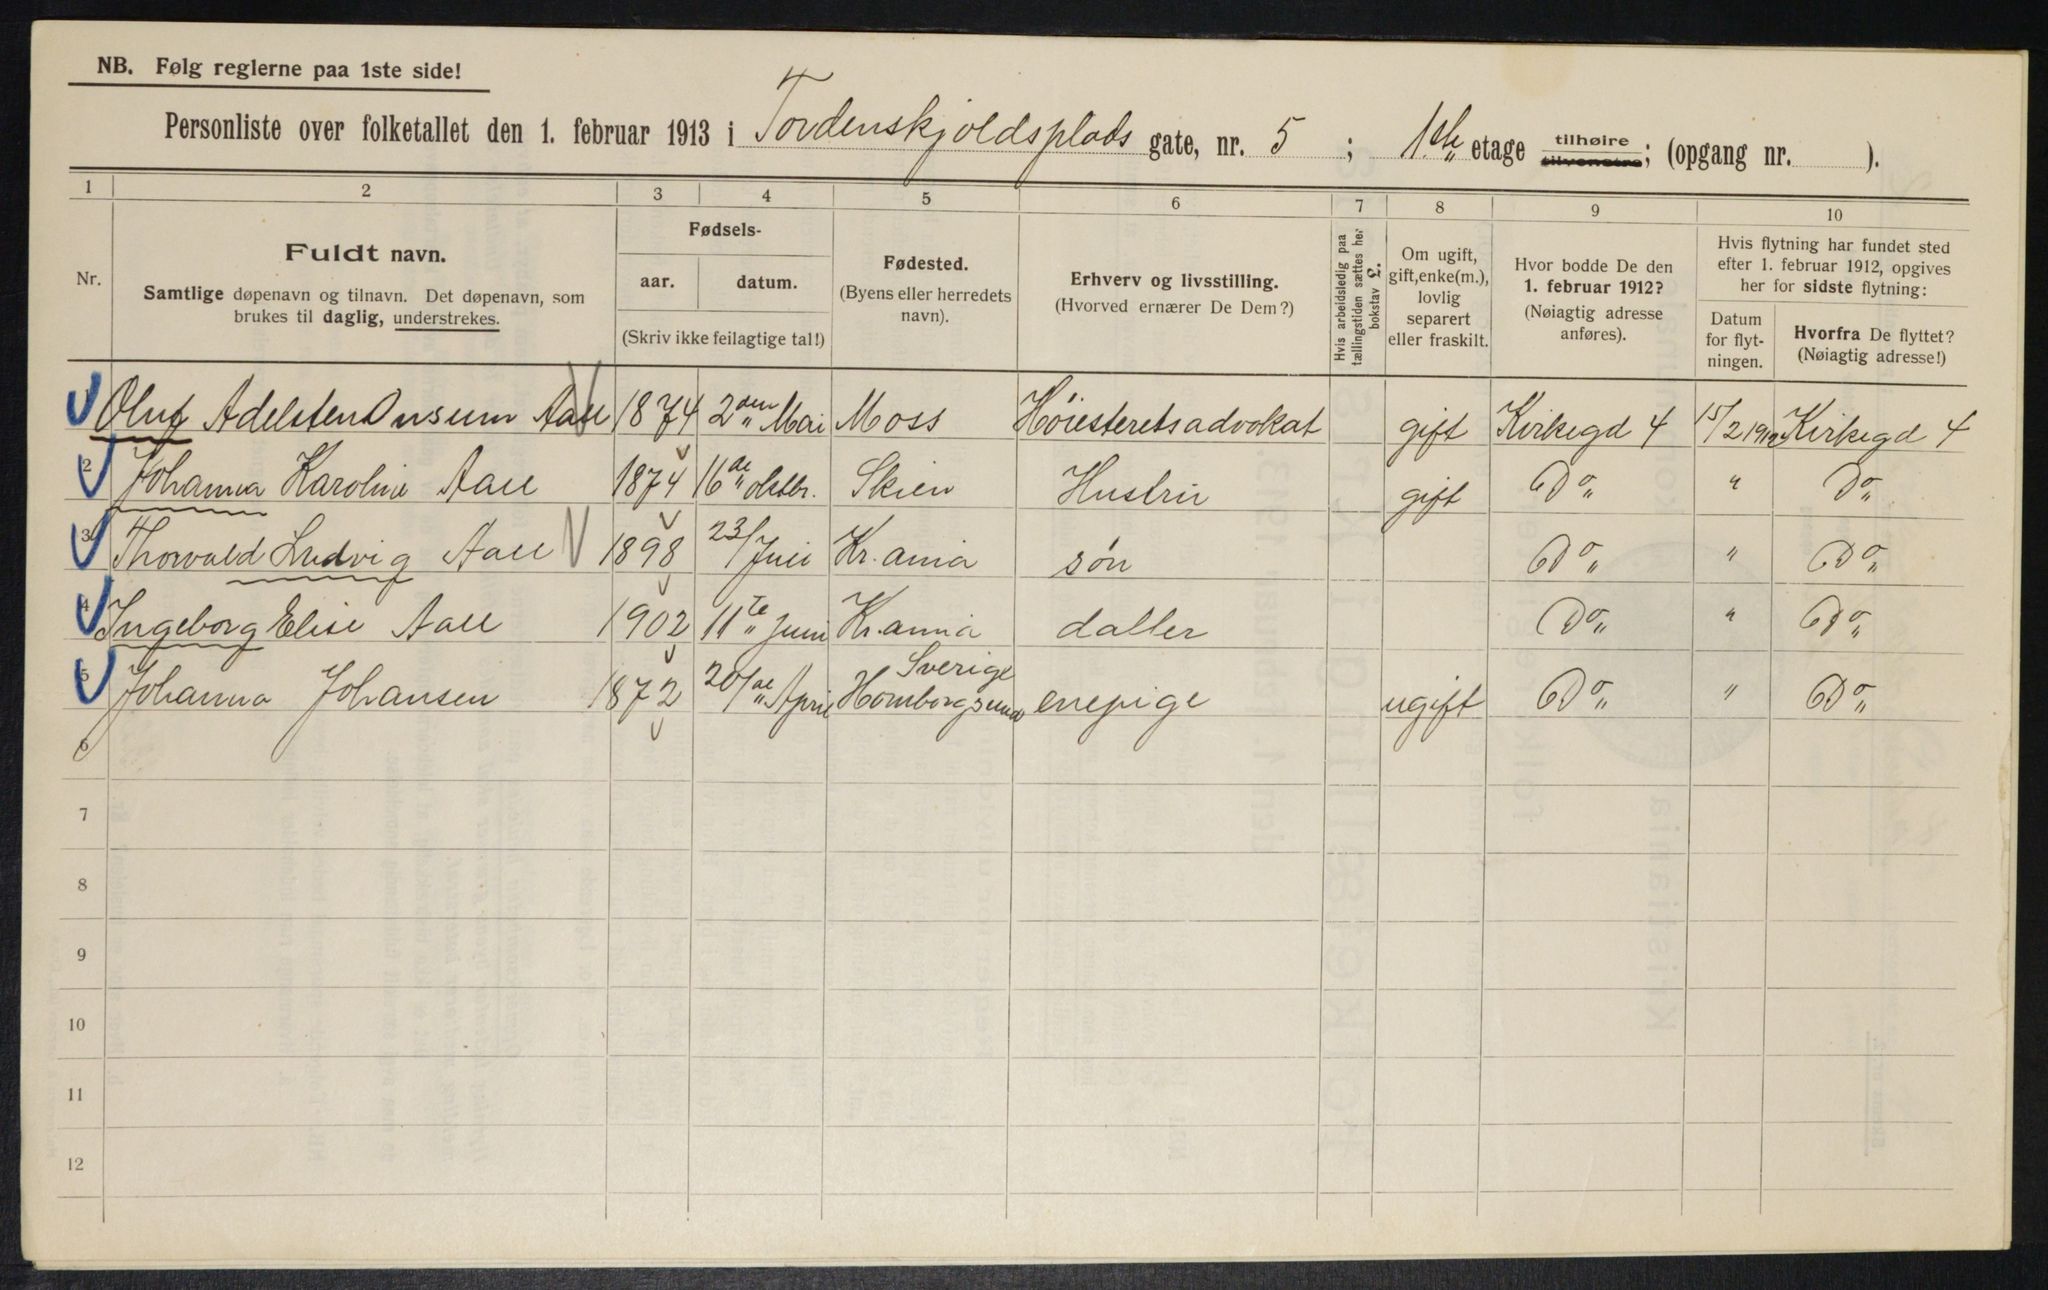 NB. Følg reglerne paa 1ste side!
Personliste over folketallet den 1. februar 1913 i Tordenskjoldsplads gate, nr. 5 ; 1ste etage tilhøire tilvenstre; (opgang nr. ).
1 2 3 4 5 6 7 8 9 10
Nr.
Fuldt navn.
Samtlige døpenavn og tilnavn. Det døpenavn, som
brukes til daglig, understrekes.
Fødsels-
aar. datum.
(Skriv ikke feilagtige tal!)
Fødested.
(Byens eller herredets
navn).
Erhverv og livsstilling.
(Hvorved ernærer De Dem?)
Hvis arbeidsledig paa
tællingstiden sættes her
bokstav L.
Om ugift,
gift, enke(m.),
lovlig
separert
eller fraskilt.
Hvor bodde De den
1. februar 1912?
(Nøiagtig adresse
anføres).
Hvis flytning har fundet sted
efter 1. februar 1912, opgives
her for sidste flytning:
Datum
for flyt-
ningen.
Hvorfra De flyttet?
(Nøiagtig adresse!)
Oluf Adelsten Onsum Aall 1874 2den Mai Moss Høiesteretsadvokat gift Kirkegd 4 15/2 1912 Kirkegd 4
2 Johanna Karoline Aall 1874 16de oktbr. Skien Hustru gift Do „ Do
3 Thorvald Ludvig Aall 1898 23/ Juli Kr.ania søn Do „ Do
4 Ingeborg Elise Aall 1902 11te Juni Kr.ania datter Do „ Do
5 Johanna Johansen 1872 20/de April Sverige Hømborgsund enepige ugift Do „ Do
6
7
8
9
10
11
12